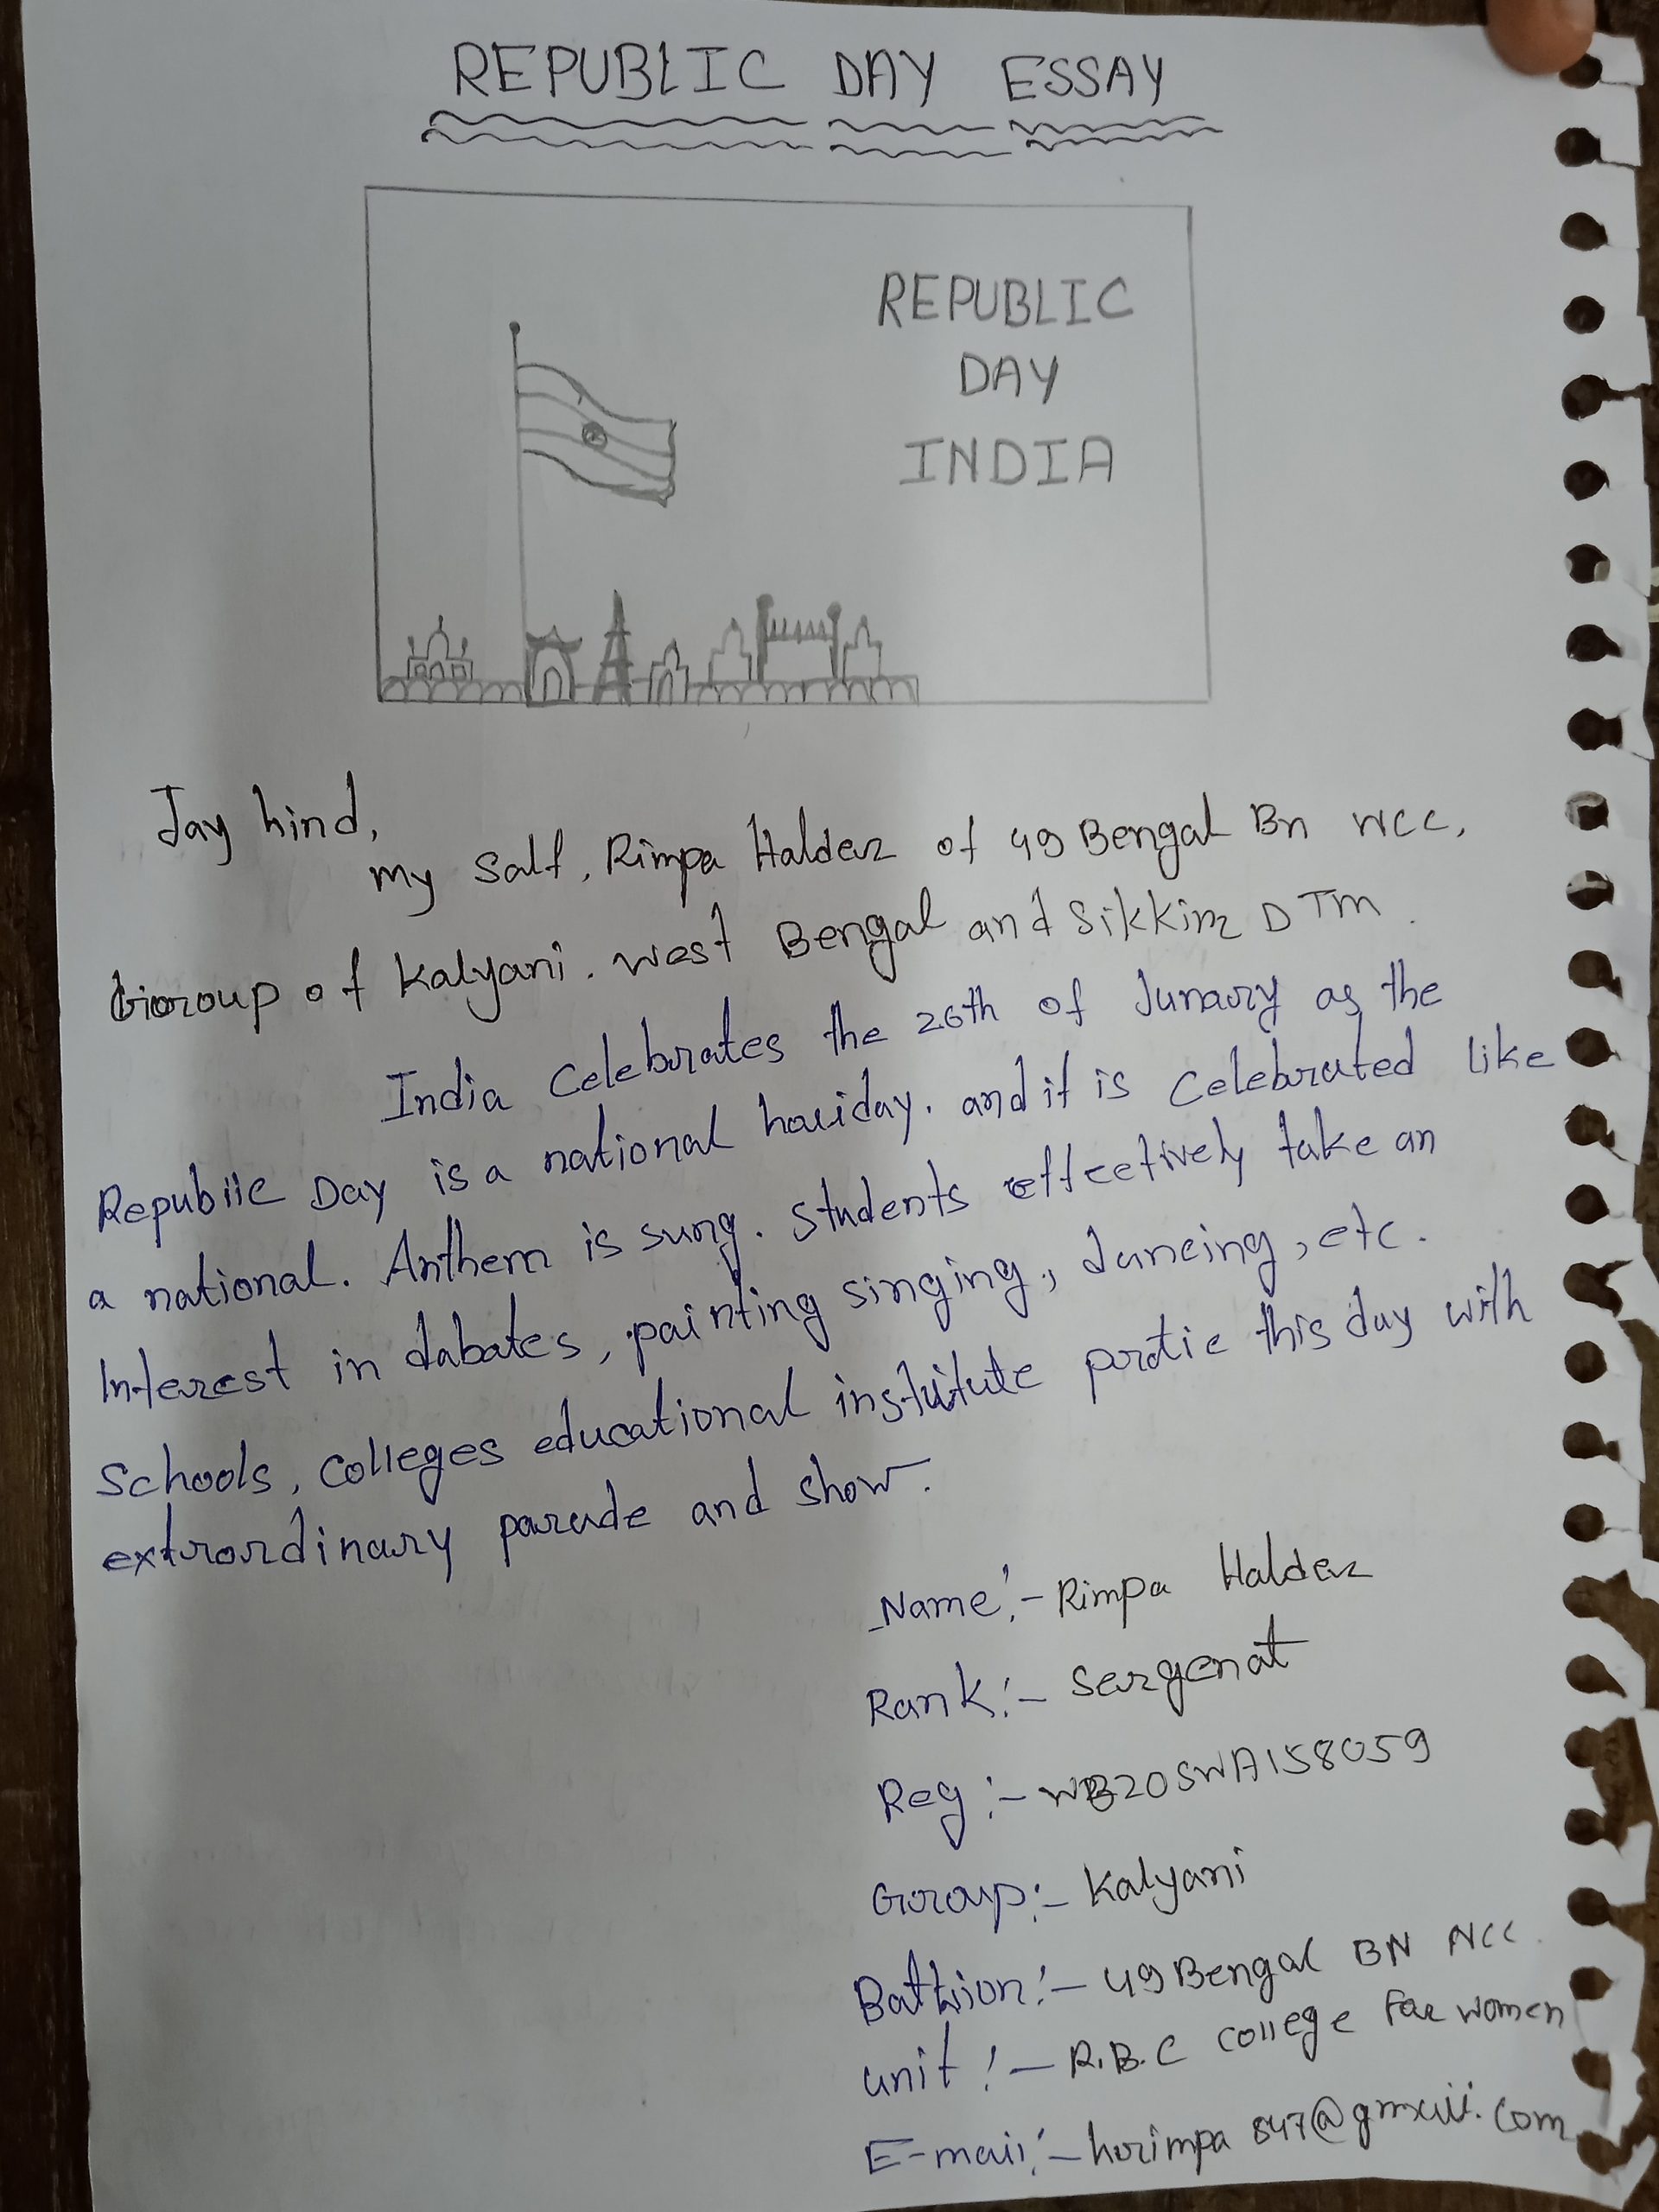 REPUBLIC DAY ESSAY
REPUBLIC
DAY
INDIA
Jay hind,
my Salf, Rimpa Halder of 49 Bengal Bn NCC,
Group of Kalyani. West Bengal and Sikkim DTM.
India Celebrates the 26th of Junary as the
Republic Day is a national holiday. and it is Celebrated like
a national. Anthem is sung. Students effectively take an
Interest in dabates, painting singing, dancing, etc.
Schools, Colleges educational institute partic this day with
extrordinary parade and show.
Name:- Rimpa Halder
Rank:- Sergenat
Reg:- WB20SWA158059
Group:- Kalyani
Battion:- 49 Bengal BN NCC.
Unit:- R.B.C College For Women
E-mail:- hrimpa 847@gmail.com